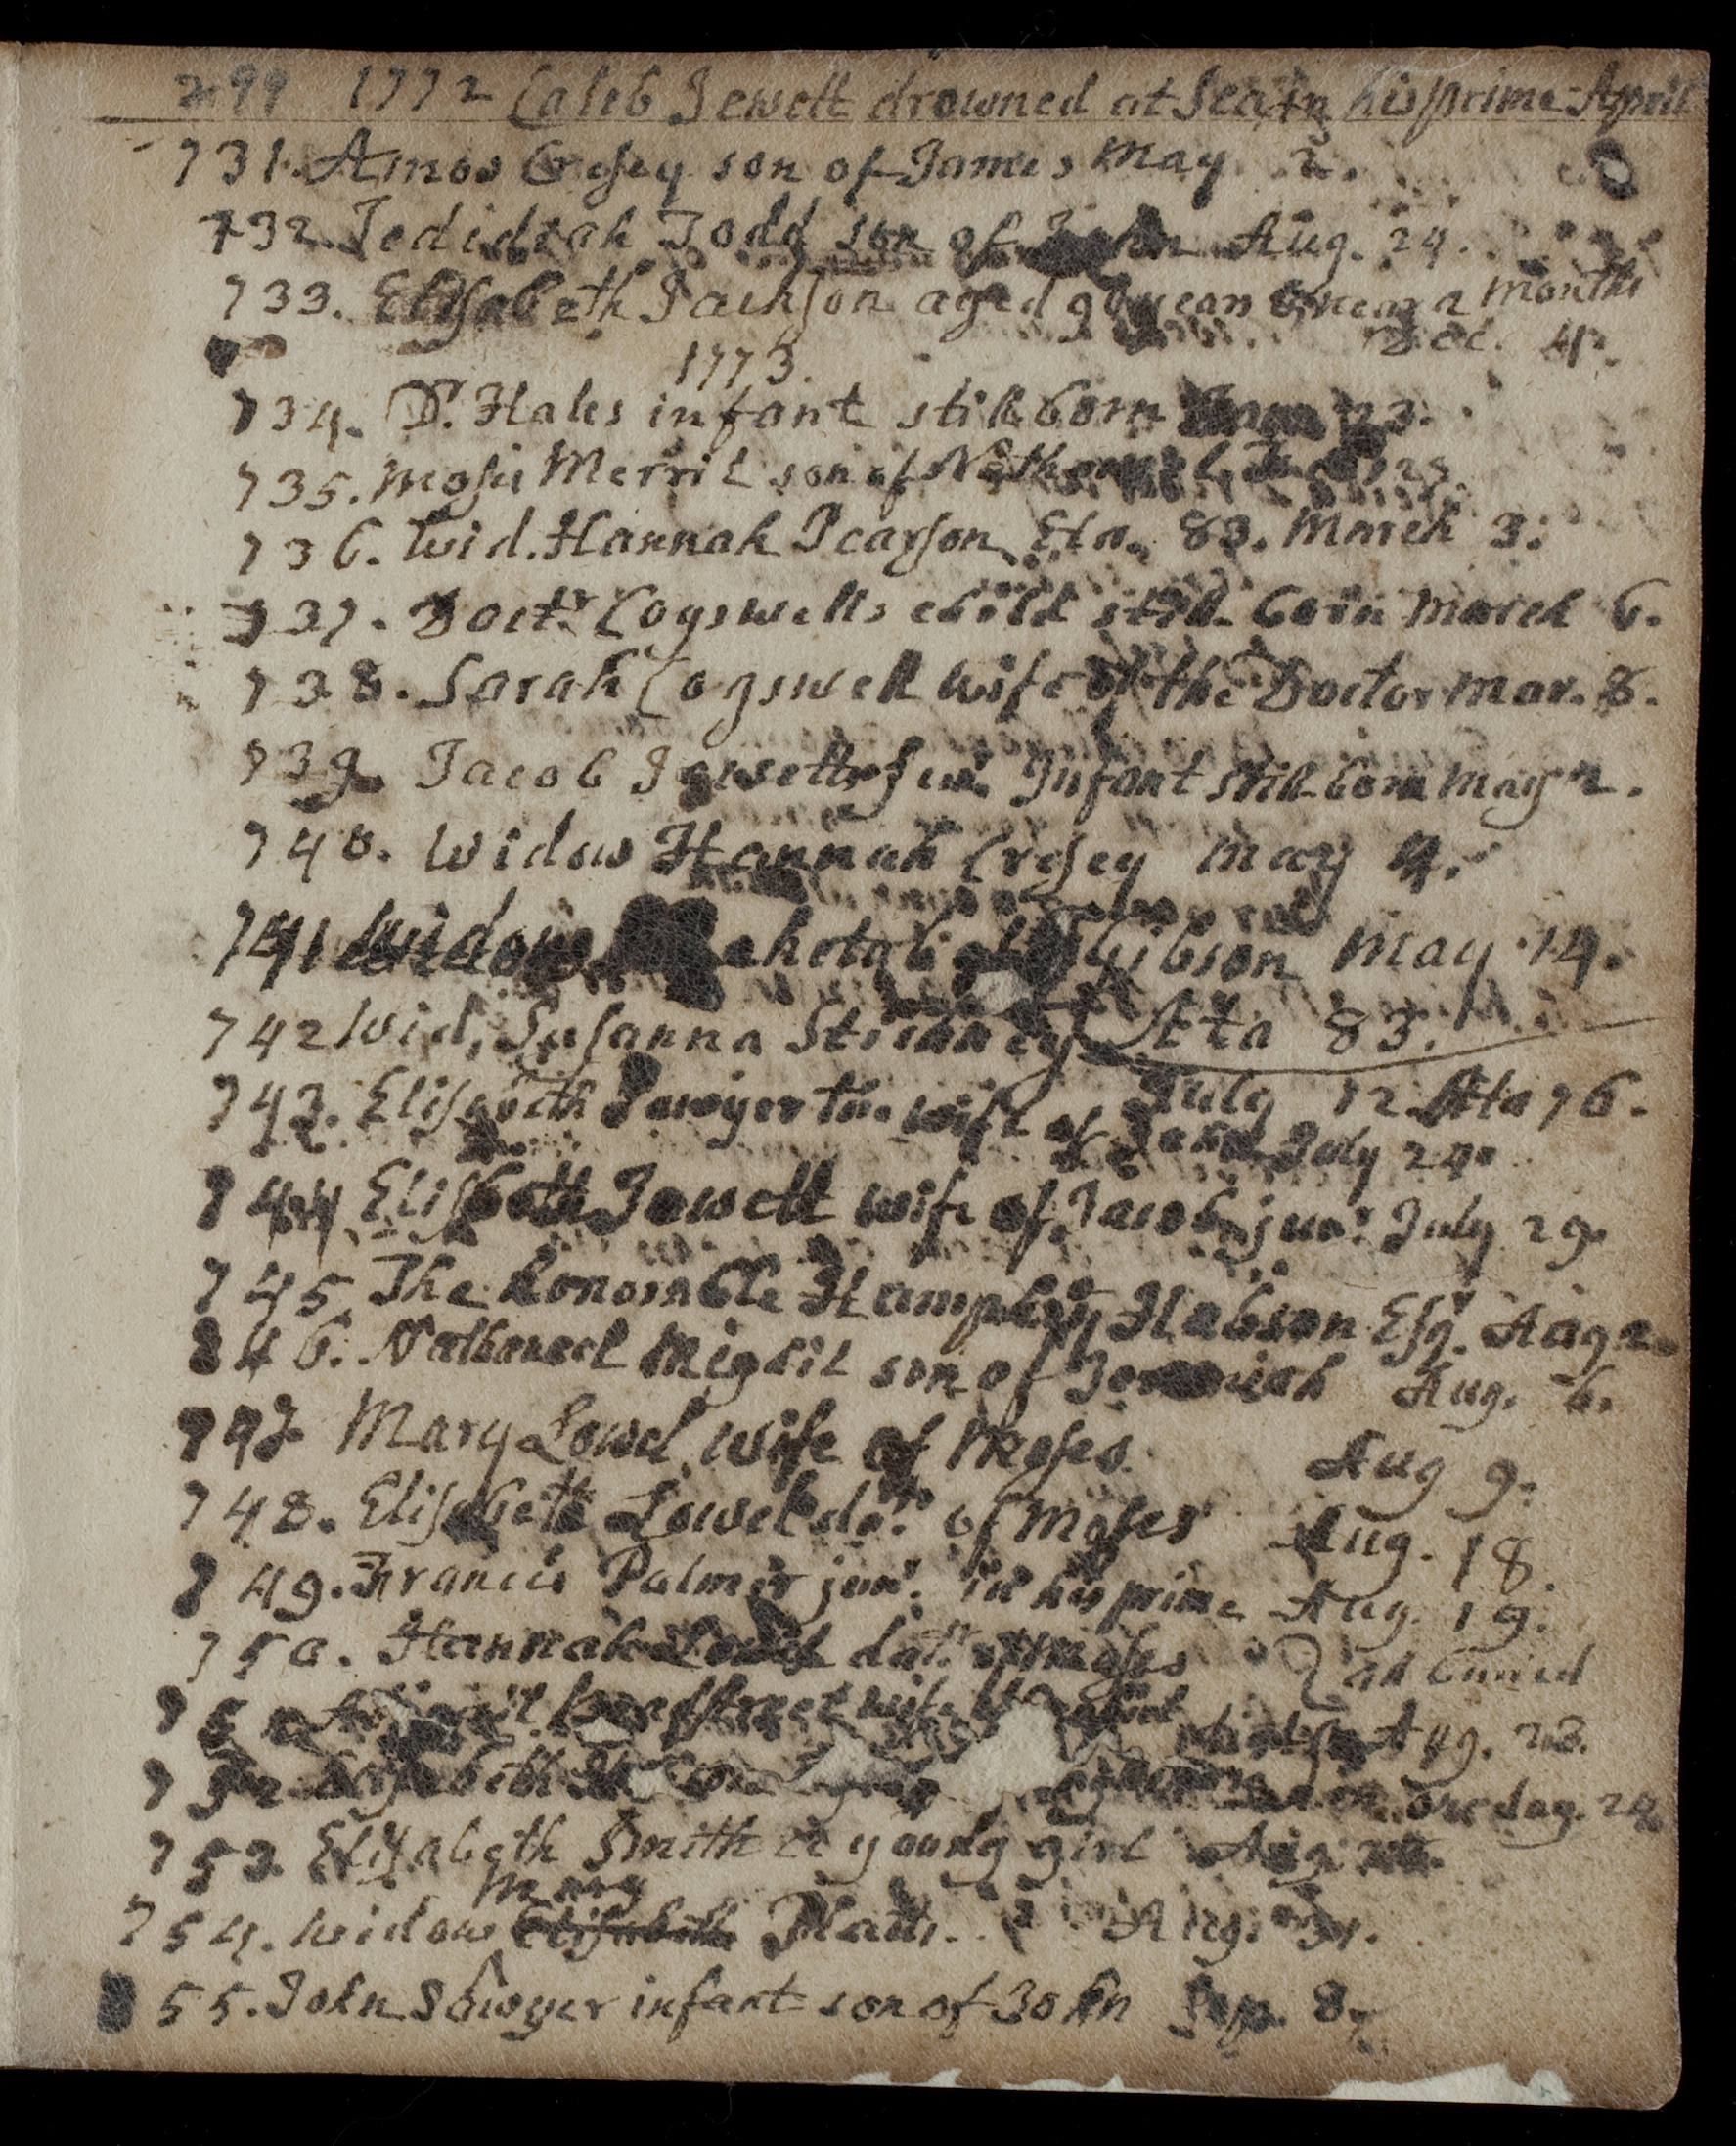 299 1772 Caleb Jewett drowned at Sea in his prime April
731. Amos Cresey son of James May 2.
732. Jedidiah Todd son of John Aug. 24.
733. Elisabeth Jackson aged 96 years & near 2 months
Dec. 4.
1773.
734. Dr. Hales infant still born 23.
735. Moses Merril son of Nathaniel 25.
736. Wid. Hannah Pearson Eta. 83. March 3.
737. Doctr. Cogswells child still born March 6.
738. Sarah Cogswell wife of the Doctor Mar. 8.
739. Jacob Jewetts junr. Infant still born May 2.
740. Widow Hannah Cresey May 4.
741 Widow Gibson May 14.
742 Wid. Susanna Stickney Ata 83.
July 12 Ata 76.
743. Elisabeth Sawyer the wife of July 24.
744 Elisbeth Jewett wife of Jacob junr. July 29.
745. The honorable Humphry Hobson Esqr. Aug 2.
746. Nathanael Mighil son of Jeremiah Aug. 6.
747 Mary Lowel wife of Moses Aug 9.
748. Elisabeth Lowel dar. of Moses Aug. 18.
749. Francis Palmer junr. in his prime Aug. 19.
750. Hannah Lowel dat. of Moses all buried
75 Bradstreet wife Aug. 23.
752 one day. 24
753 Elisabeth Smith a young girl Aug.
Mary
754. Widow Elisabeth Plats. Aug. 31.
755. John Sawyer infant son of John Sep. 8.